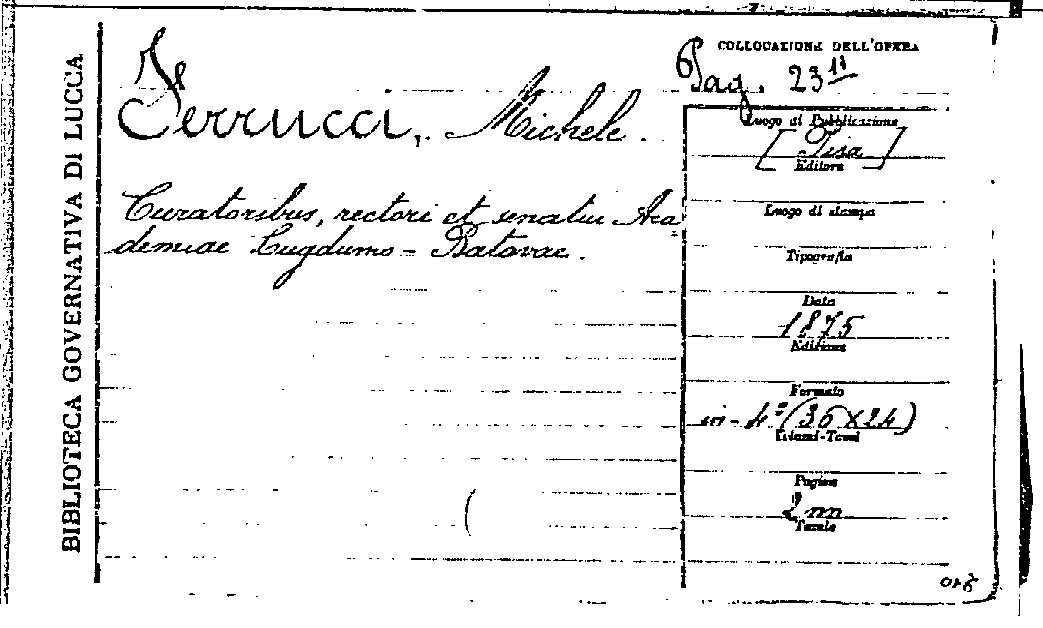 BIBLIOTECA GOVERNATIVA DI LUCCA
Ferrucci, Michele.
Curatoribus, rectori et senatui Aca
demiae Lugduno-Batavae.
COLLOCAZIONE DELL'OPERA
Pag. 23 11
Luogo di Pubblicazione
[Pisa]
Editore
Luogo di stampa
Tipografia
Data
1875
Edizione
Formato
in-4º (36 x 24)
Volumi-Tomi
Pagine
2 nn
Tavole